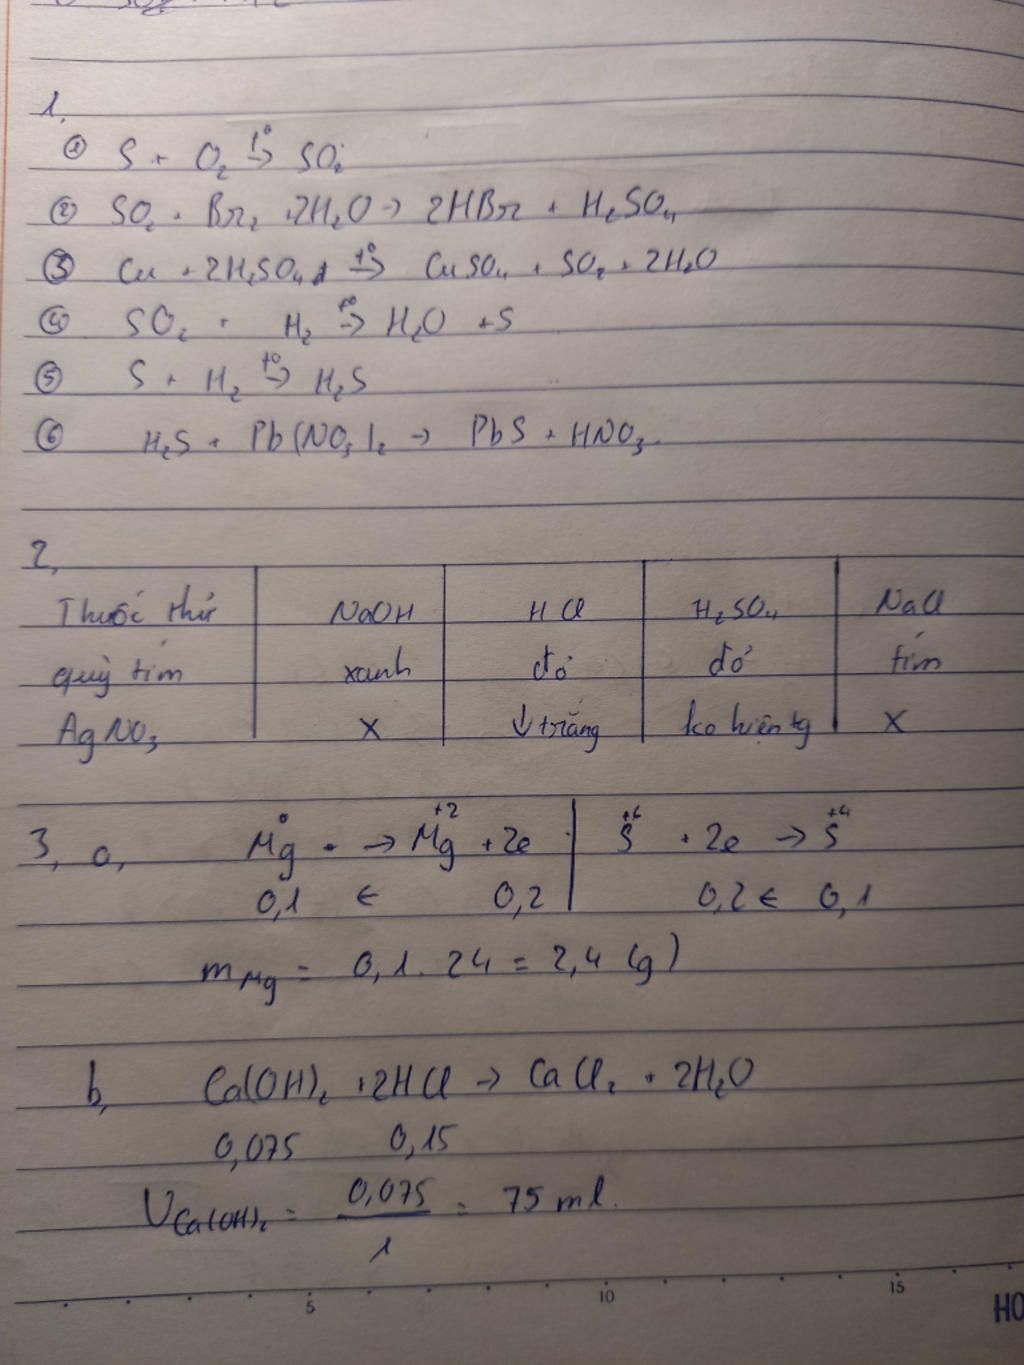 1,
① S + O₂ t°→ SO₂
② SO₂ + Br₂ + 2H₂O → 2HBr + H₂SO₄
③ Cu + 2H₂SO₄ t°→ CuSO₄ + SO₂ + 2H₂O
④ SO₂ + H₂ t°→ H₂O + S
⑤ S + H₂ t°→ H₂S
⑥ H₂S + Pb(NO₃)₂ → PbS + HNO₃.
2,
Thuốc thử NaOH HCl H₂SO₄ NaCl
quỳ tím xanh đỏ đỏ tím
AgNO₃ X ↓ trắng ko hiện tg X
3, a, Mg⁰ → Mg⁺² + 2e | S⁺⁶ + 2e → S⁺⁴
0,1 ← 0,2 0,2 ← 0,1
mMg = 0,1 . 24 = 2,4 (g)
b, Ca(OH)₂ + 2HCl → CaCl₂ + 2H₂O
0,075 0,15
VCa(OH)₂ = 0,075 / 1 = 75 ml.
5 10 15
HO